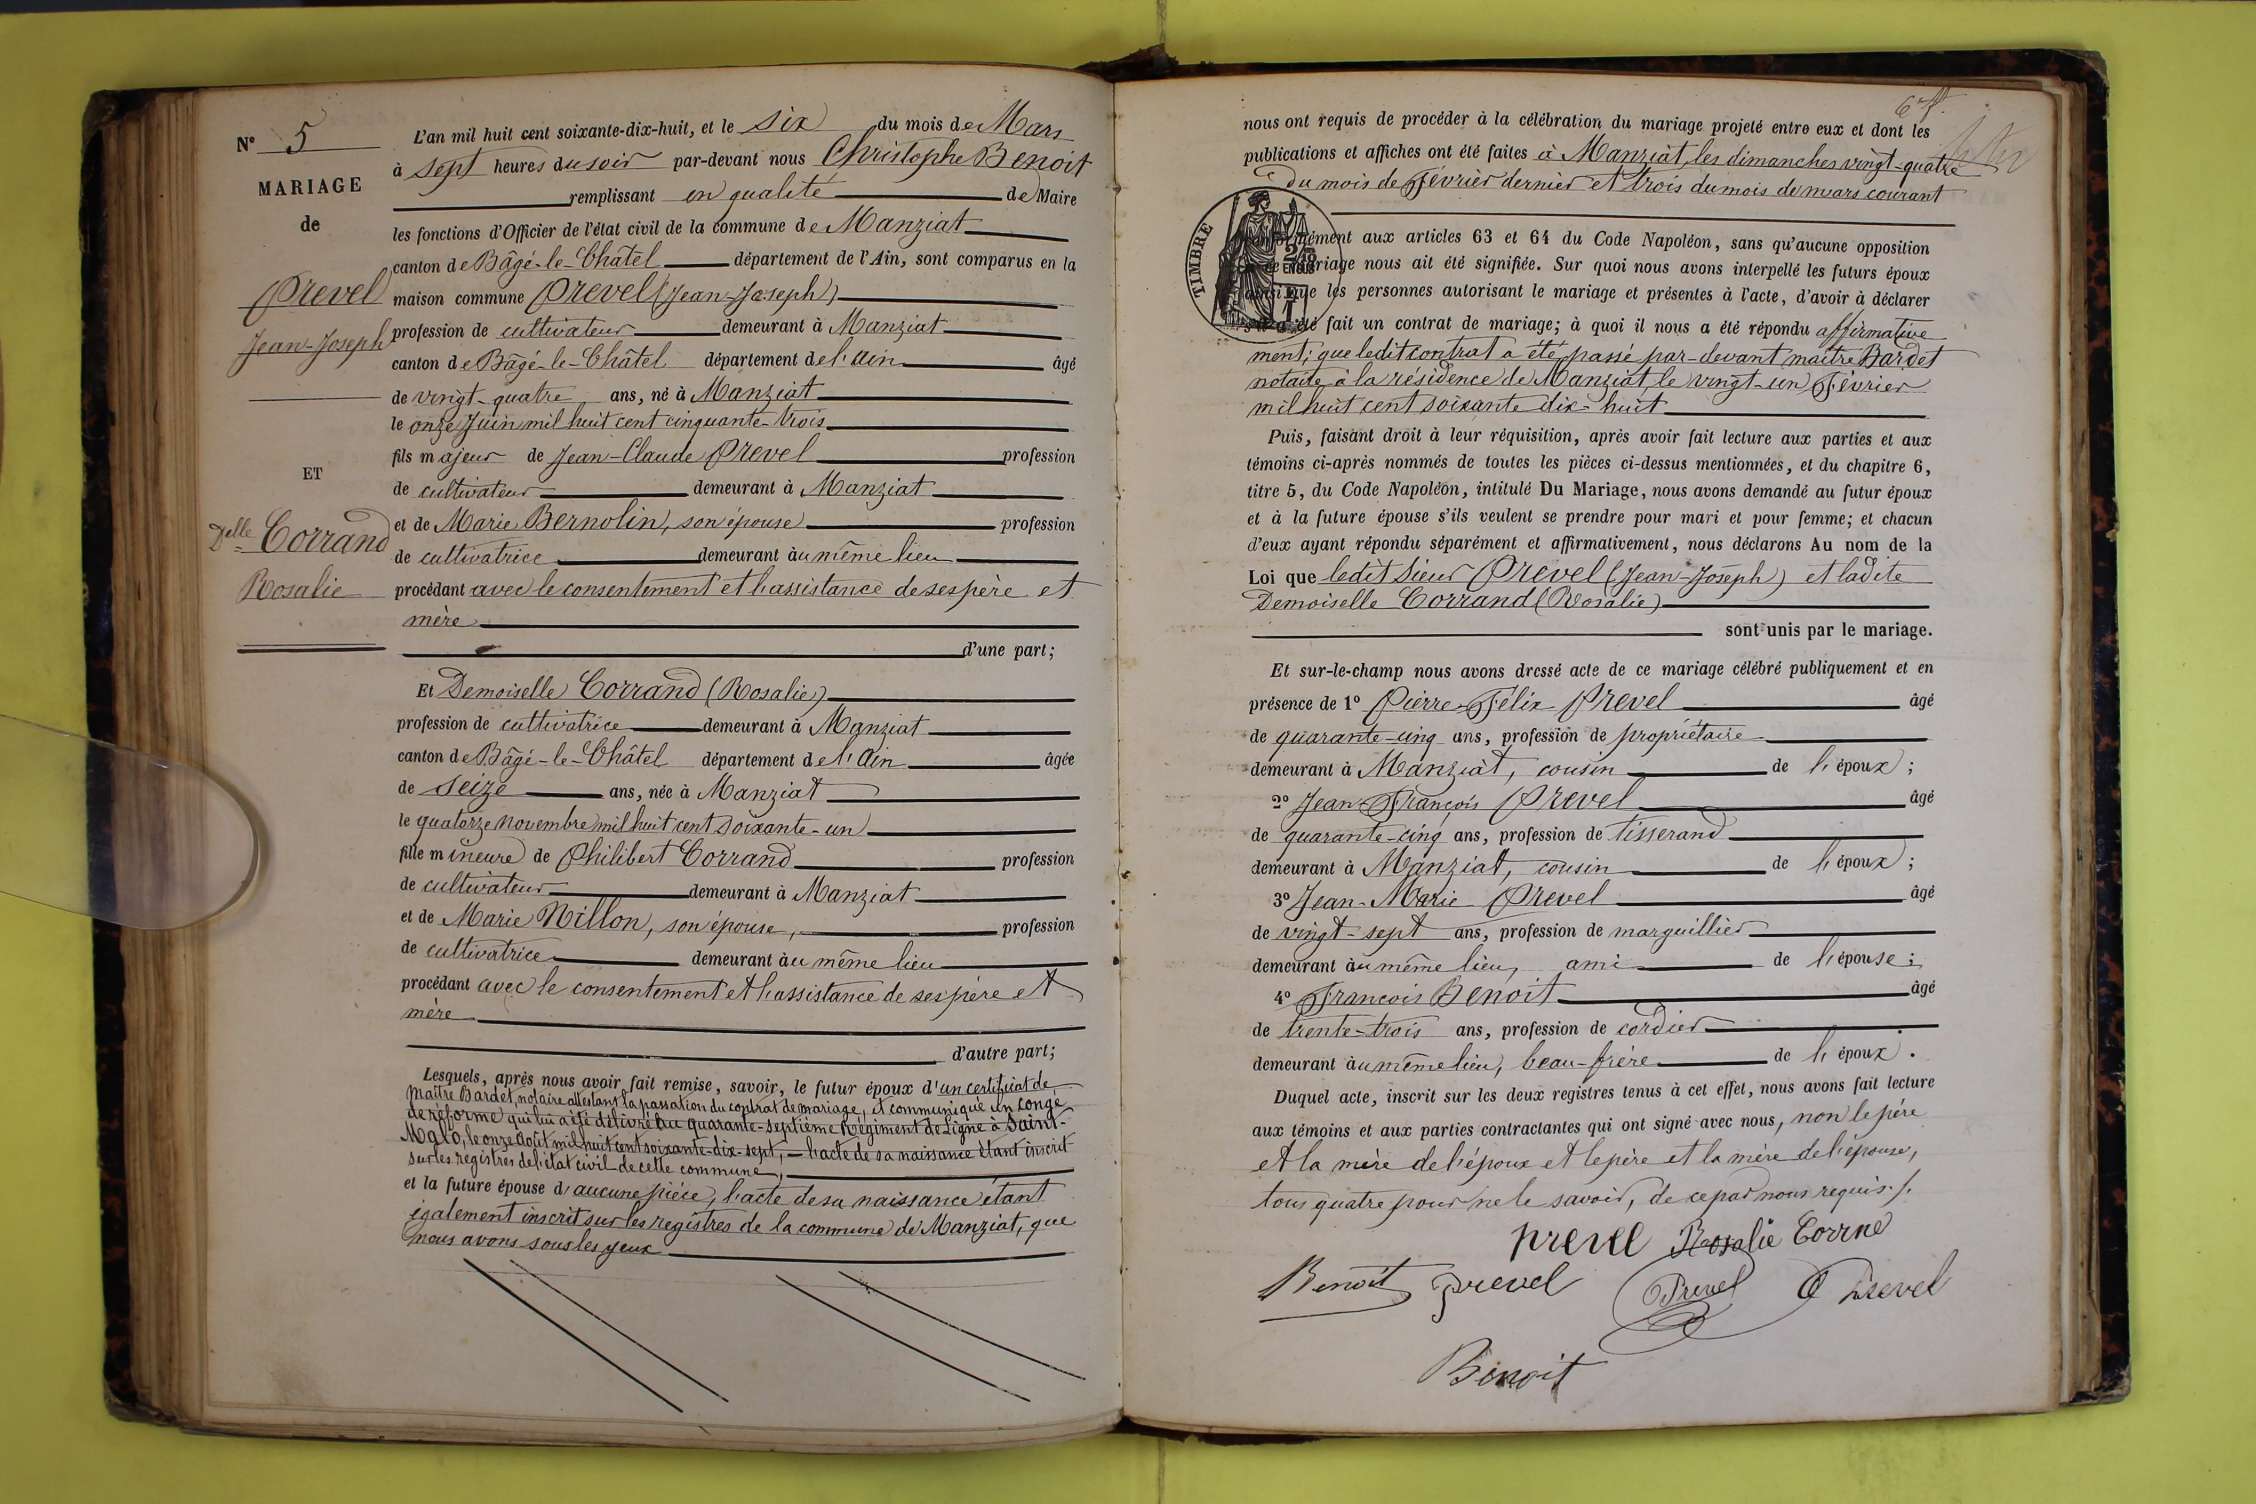 N° 5
MARIAGE
de
Prevel
Jean-Joseph
ET
Delle Corrand
Rosalie
L'an mil huit cent soixante-dix-huit, et le Six du mois de Mars
à sept heures du soir par-devant nous Christophe Benoit
remplissant en qualité de Maire
les fonctions d'Officier de l'état civil de la commune de Manziat
canton de Bâgé-le-Châtel département de l'Ain, sont comparus en la
maison commune Prevel (Jean-Joseph)
profession de cultivateur demeurant à Manziat
canton de Bâgé-le-Châtel département de l'ain âgé
de vingt-quatre ans, né à Manziat
le onze Juin mil huit cent cinquante-trois
fils majeur de Jean-Claude Prevel profession
de cultivateur demeurant à Manziat
et de Marie Bernolin, son épouse profession
de cultivatrice demeurant au même lieu
procédant avec le consentement et l'assistance de ses père et
mère
d'une part;
Et Demoiselle Corrand (Rosalie)
profession de cultivatrice demeurant à Manziat
canton de Bâgé-le-Châtel département de l'Ain âgée
de Seize ans, née à Manziat
le quatorze Novembre mil huit cent soixante-un
fille mineure de Philibert Corrand profession
de cultivateur demeurant à Manziat
et de Marie Nillon, son épouse, profession
de cultivatrice demeurant au même lieu
procédant avec le consentement et l'assistance de ses père et
mère
d'autre part;
Lesquels, après nous avoir fait remise, savoir, le futur époux d'un certificat de
Maître Bardet, notaire attestant la passation du contrat de mariage, et communiqué un congé
de réforme qui lui a été délivré au quarante-septième Régiment de Ligne à Saint-
Malo, le onze août mil huit cent soixante-dix-sept, l'acte de sa naissance étant inscrit
sur les registres de l'état civil de cette commune,
et la future épouse d'aucune pièce, l'acte de sa naissance étant
également inscrit sur les registres de la commune de Manziat, que
nous avons sous les yeux
nous ont requis de procéder à la célébration du mariage projeté entre eux et dont les
publications et affiches ont été faites à Manziat, les dimanches vingt-quatre
du mois de Février dernier et trois du mois de mars courant
TIMBRE
conformément aux articles 63 et 64 du Code Napoléon, sans qu'aucune opposition
à ce mariage nous ait été signifiée. Sur quoi nous avons interpellé les futurs époux
ainsi que les personnes autorisant le mariage et présentes à l'acte, d'avoir à déclarer
s'il a été fait un contrat de mariage; à quoi il nous a été répondu affirmative
ment; que ledit contrat a été passé par-devant maître Bardet
notaire à la résidence de Manziat, le vingt-un Février
mil huit cent soixante dix-huit
Puis, faisant droit à leur réquisition, après avoir fait lecture aux parties et aux
témoins ci-après nommés de toutes les pièces ci-dessus mentionnées, et du chapitre 6,
titre 5, du Code Napoléon, intitulé Du Mariage, nous avons demandé au futur époux
et à la future épouse s'ils veulent se prendre pour mari et pour femme; et chacun
d'eux ayant répondu séparément et affirmativement, nous déclarons Au nom de la
Loi que ledit Sieur Prevel (Jean-Joseph) et ladite
Demoiselle Corrand (Rosalie)
sont unis par le mariage.
Et sur-le-champ nous avons dressé acte de ce mariage célébré publiquement et en
présence de 1° Pierre-Félix Prevel âgé
de quarante-cinq ans, profession de propriétaire
demeurant à Manziat, cousin de l'époux;
2° Jean-François Prevel âgé
de quarante-cinq ans, profession de tisserand
demeurant à Manziat, cousin de l'époux;
3° Jean-Marie Prevel âgé
de vingt-sept ans, profession de marguillier
demeurant au même lieu, ami de l'épouse;
4° François Benoit âgé
de trente-trois ans, profession de cordier
demeurant au même lieu, beau-frère de l'époux.
Duquel acte, inscrit sur les deux registres tenus à cet effet, nous avons fait lecture
aux témoins et aux parties contractantes qui ont signé avec nous, non le père
et la mère de l'époux et le père et la mère de l'épouse,
tous quatre pour ne le savoir, de ce par nous requis./.
prevel Rosalie Corrne
Benoît prevel Prevel Prevel
Benoit